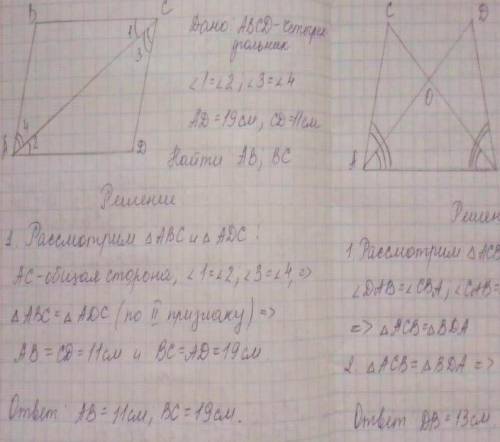 B
C
1
3
4
2
A
D
Дано: ABCD-четырех
угольник
∠1=∠2, ∠3=∠4
AD=19см, CD=11см
Найти AB; BC
Решение
1. Рассмотрим △ABC и △ADC:
AC-общая сторона, ∠1=∠2, ∠3=∠4, =>
△ABC=△ADC (по II признаку) =>
AB=CD=11см и BC=AD=19см
Ответ: AB=11см, BC=19см.
C
D
O
A
Решен
1. Рассмотрим △ACB
∠DAB=∠CBA, ∠CAB=
=> △ACB=△BDA
2. △ACB=△BDA =>
Ответ DB=13см